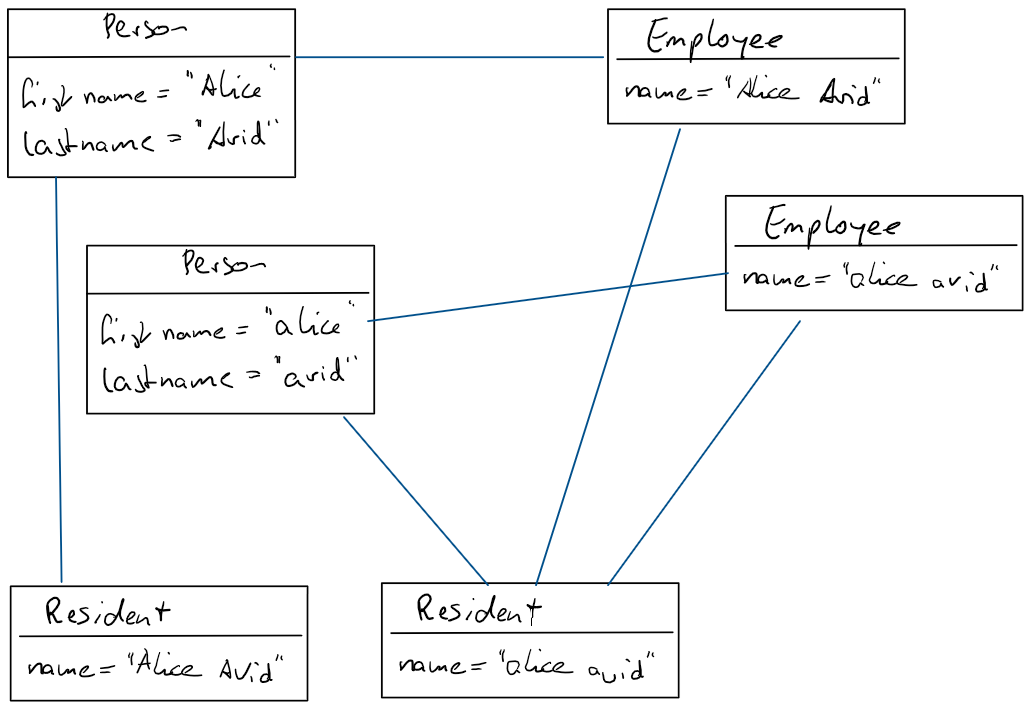 Person
first name = "Alice"
lastname = "Avid"
Employee
name = "Alice Avid"
Employee
name = "alice avid"
Person
first name = "alice"
lastname = "avid"
Resident
name = "Alice Avid"
Resident
name = "alice avid"